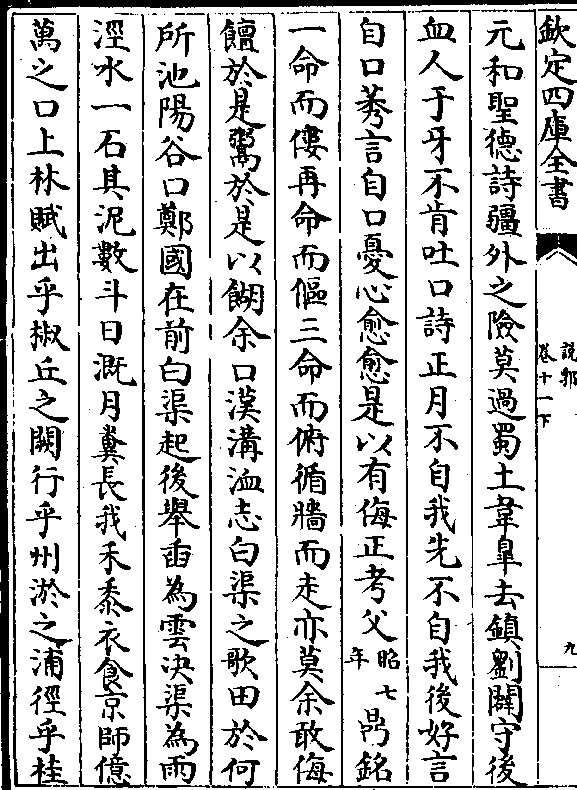 欽定四庫全書
說郛
卷十一下
九
元和聖德詩疆外之險莫過蜀土韋臯去鎮劉闢守後
血人于牙不肯吐口詩正月不自我先不自我後好言
自口莠言自口憂心愈愈是以有侮正考父昭七年鼎銘
一命而僂再命而傴三命而俯循牆而走亦莫余敢侮
饘於是鬻於是以餬余口漢溝洫志白渠之歌田於何
所池陽谷口鄭國在前白渠起後舉臿為雲決渠為雨
涇水一石其泥數斗日溉月糞長我禾黍衣食京師億
萬之口上林賦出乎椒丘之闕行乎州淤之浦徑乎桂